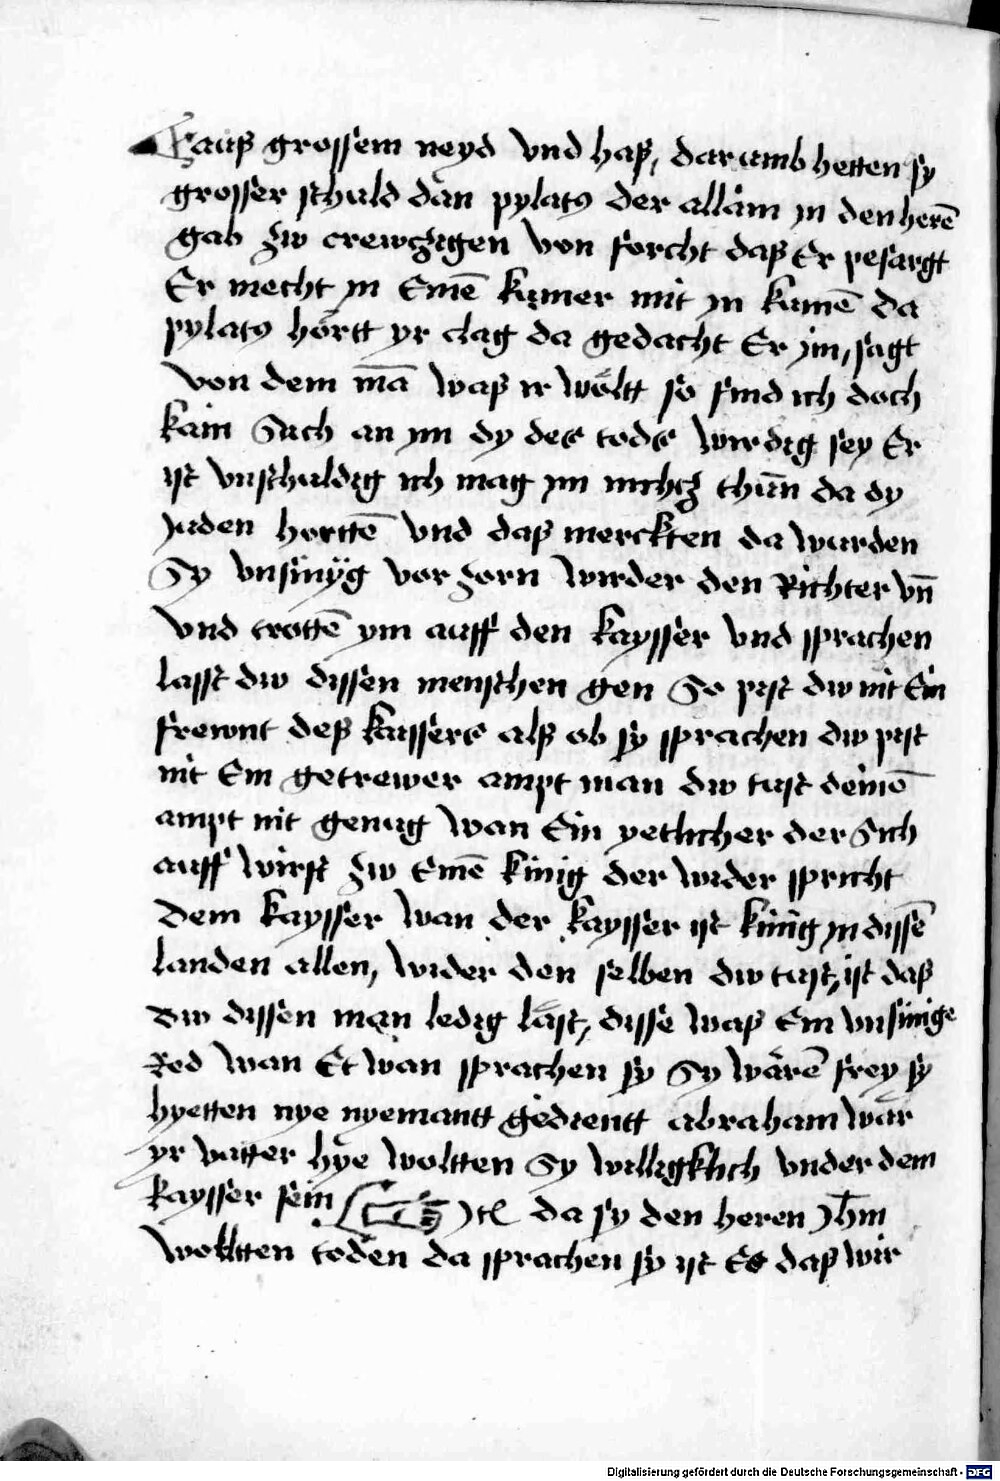 auß grossem neyd vnd haß, darumb hetten sy
grosser schuld dan pylatꝰ der allain jn den herē
gab zw crewczigen von forcht daß Er pesargt
Er mecht jn Einē kumer mit jn kumē da
pylatꝰ hörtt yr clag da gedacht Er jm, sagt
von dem mā waß ir wöltt so find ich doch
kain Sach an jm dy des tods wirdig sey Er
ist vnschuldig ich mag jm nichcz thun̄ da dy
juden horttē vnd daß merckten da wurden
Sy vnsinÿg vor zorn wider den Richter vn̄
vnd trottē ym auff den kaysser vnd sprachen
lasst dw dissen menschen gen So pist dw nit Ein
frewnt deß kaissers alß ob sy sprachen dw pist
nit Ein getrewer ampt man dw tust deinē
ampt nit genug wan Ein yetlicher der Sich
auff wirft zw Einē kinig der wider spricht
dem kaysser wan der kaysser ist kinig jn dissē
landen allen, wider den selben dw tust, ist daß
dw dissen man ledig låst, disse waß Ein vnsinige
Red wan Et wan sprachen sy Sy wårē frey sy
hyetten nye nyemantt gedientt abraham war
yr vatter hye woltten Sy willigklich vnder dem
kaysser sein jtl da sy den heren jhm
wolltten toden da sprachen sy ist Es daß wir
Digitalisierung gefördert durch die Deutsche Forschungsgemeinschaft - DFG